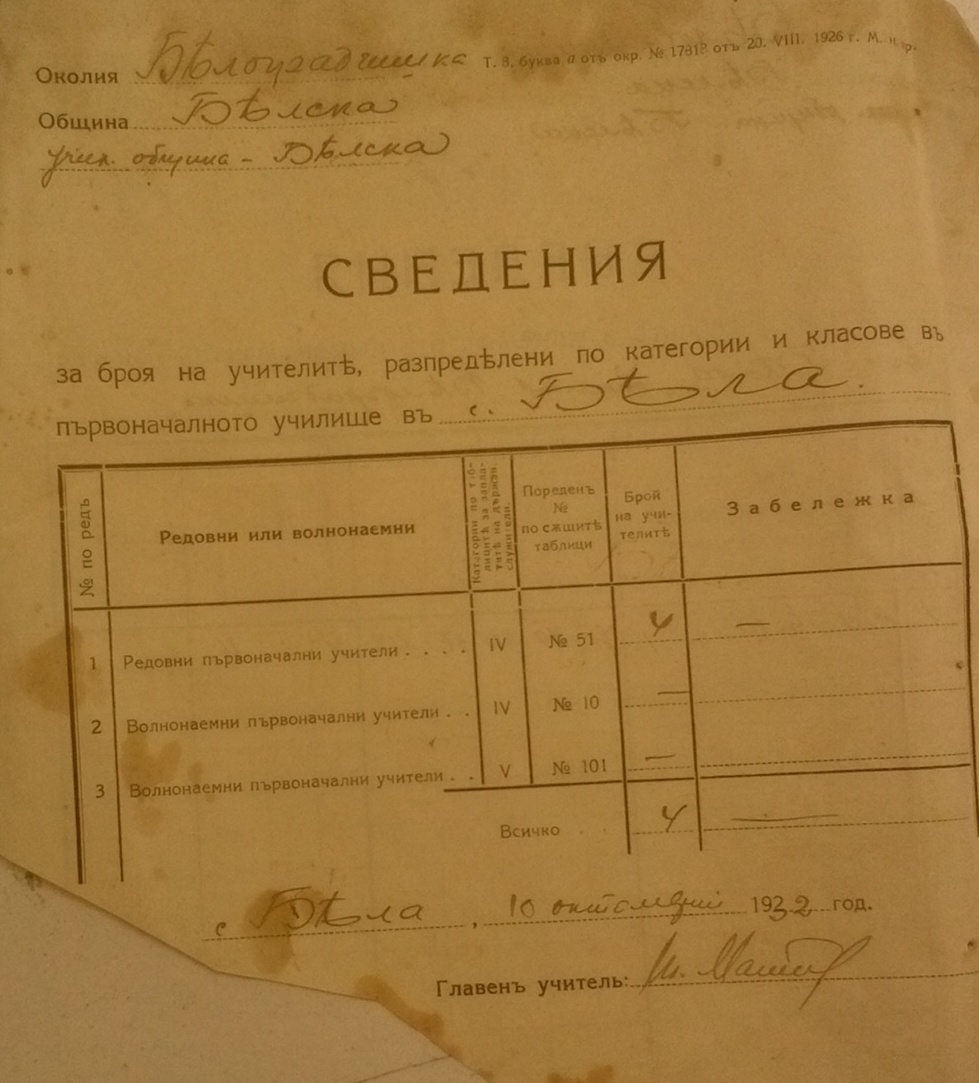 Околия Бѣлоградчишка Т. 8. буква а отъ окр. № 17818 отъ 20. VIII. 1926 г. М. н. пр.
Община Бѣлска
учил. община - Бѣлска
СВЕДЕНИЯ
за броя на учителитѣ, разпредѣлени по категории и класове въ
първоначалното училище въ с. Бѣла.
№ по редъ
Редовни или волнонаемни
Категории по таблицитѣ за заплатитѣ на държ. служители.
Пореденъ
№
по сѫщитѣ
таблици
Брой
на учи-
телитѣ
Забележка
1 Редовни първоначални учители . . . . IV № 51 4 —
2 Волнонаемни първоначални учители . . IV № 10 —
3 Волнонаемни първоначални учители . . V № 101 —
Всичко . . 4 —
с Бѣла, 10 октомврий 1932 год.
Главенъ учитель: